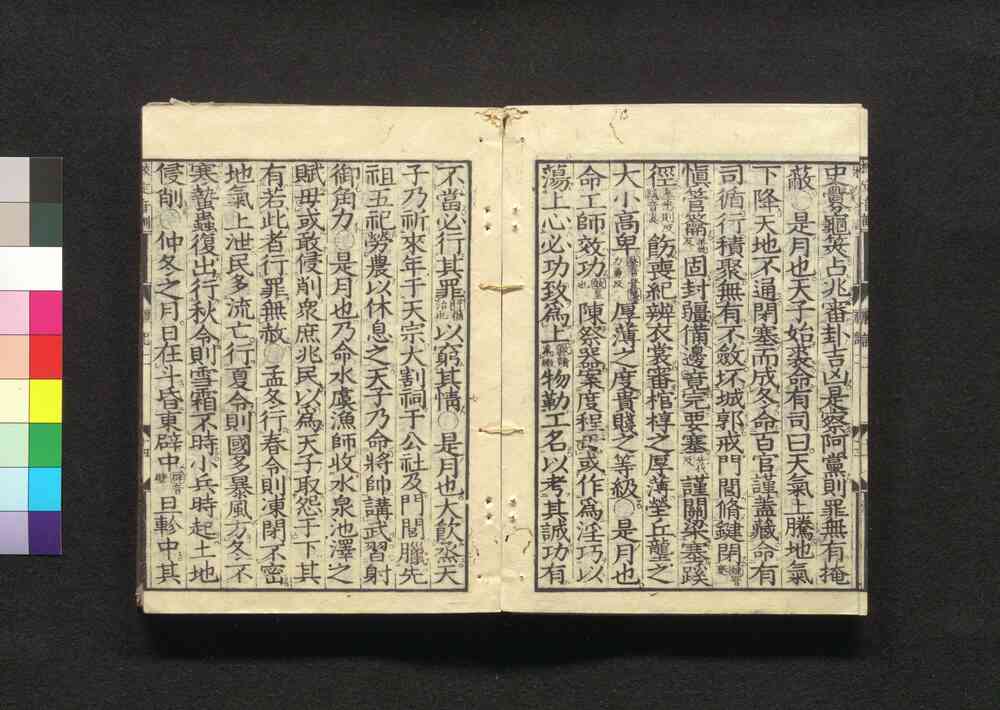 史釁龜筴占兆審卦吉凶是察阿黨則罪無有掩
蔽○是月也天子始裘命有司曰天氣上騰地氣
下降天地不通閉塞而成冬命百官謹蓋藏命有
司循行積聚無有不斂坏城郭戒門閭脩鍵閉
愼管籥固封疆備邊竟完要塞謹關梁塞蹊
徑飭喪紀辨衣裳審棺椁之厚薄塋丘壟之
大小高卑厚薄之度貴賤之等級○是月也
命工師效功陳祭器案度程毋或作爲淫巧以
蕩上心必功致爲上物勒工名以考其誠功有
不當必行其罪以窮其情○是月也大飮烝天
子乃祈來年于天宗大割祠于公社及門閭臘先
祖五祀勞農以休息之天子乃命將帥講武習射
御角力○是月也乃命水虞漁師收水泉池澤之
賦毋或敢侵削衆庶兆民以爲天子取怨于下其
有若此者行罪無赦○孟冬行春令則凍閉不密
地氣上泄民多流亡行夏令則國多暴風方冬不
寒蟄蟲復出行秋令則雪霜不時小兵時起土地
侵削○仲冬之月日在斗昏東辟中旦軫中其